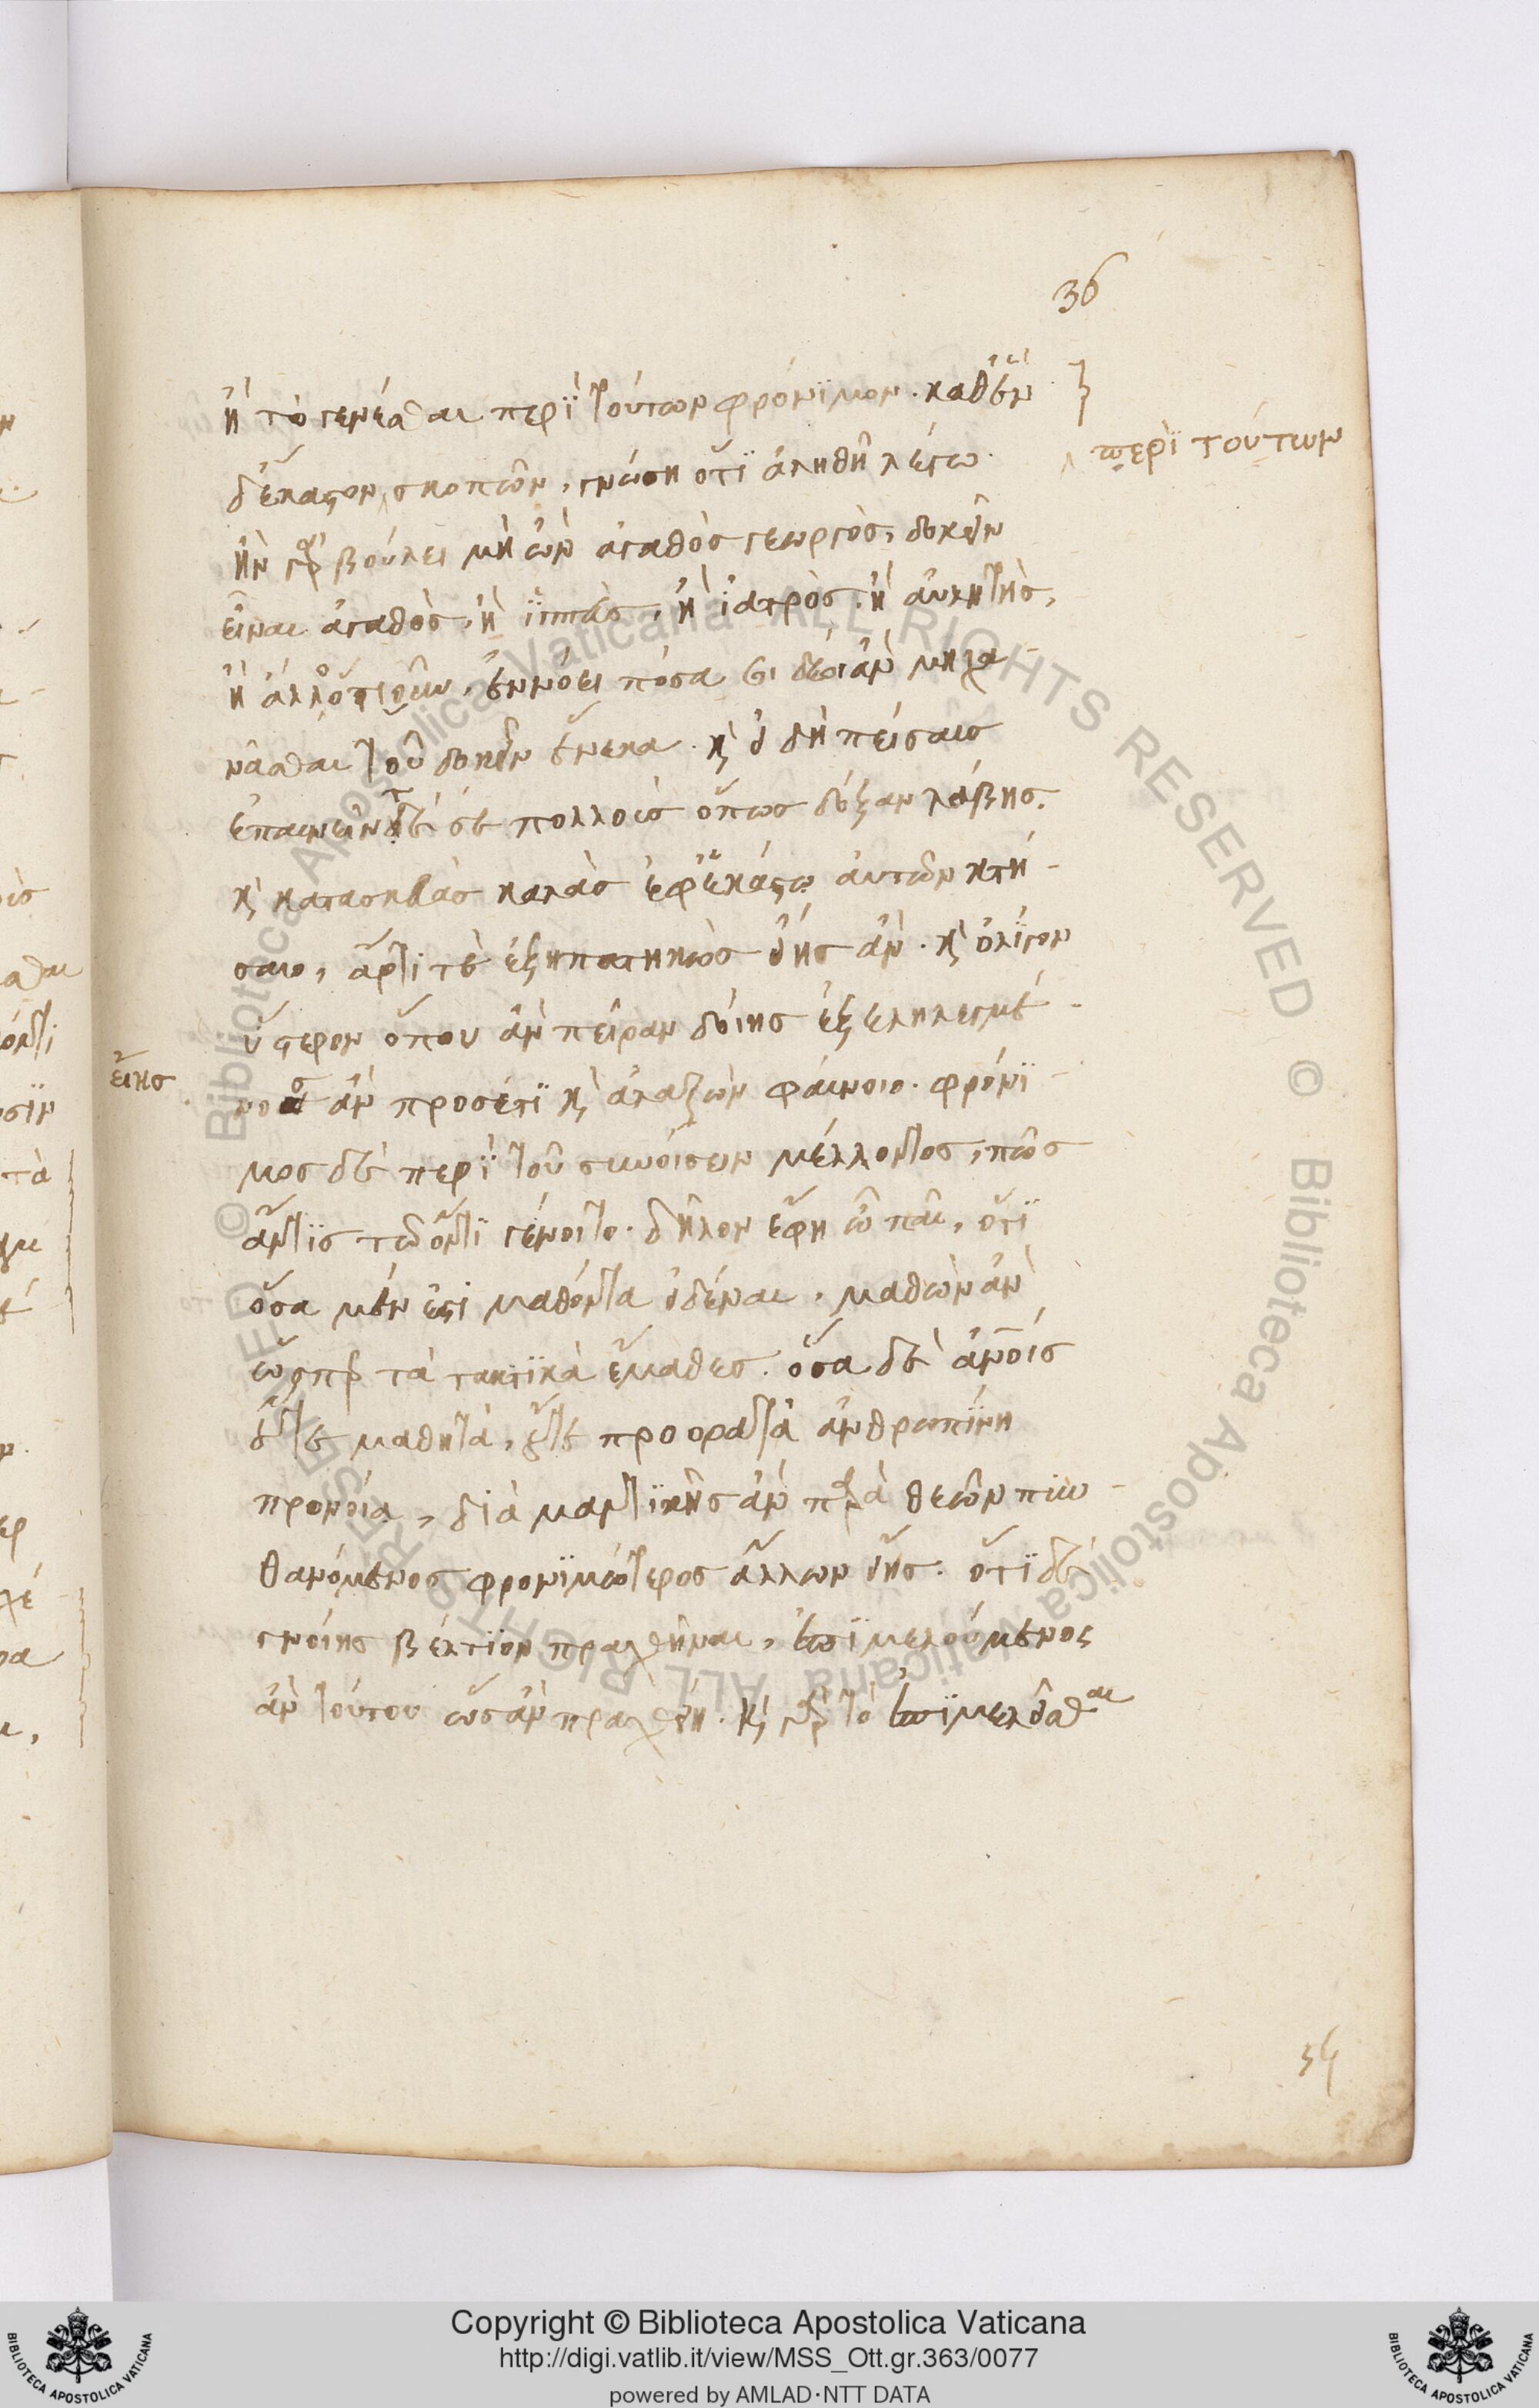 36
ἢ τὸ γενέσθαι περὶ τούτων φρόνιμον. καθ' ἓν
δ' ἕκαστον σκοπῶν, γνώσῃ ὅτι ἀληθῆ λέγω.
περὶ τούτων
ἢν γὰρ βούλει μὴ ὢν ἀγαθὸς γεωργὸς, δοκεῖν
εἶναι ἀγαθὸς, ἢ ἱππεὺς, ἢ ἰατρὸς, ἢ αὐλητὴς,
ἢ ἄλλ' ὁτιοῦν, ἐννόει πόσα σε δέοι ἂν μηχα-
νᾶσθαι τοῦ δοκεῖν ἕνεκα. καὶ εἰ δὴ πείσαις
ἐπαινεῖν τέ σε πολλοὺς ὅπως δόξαν λάβῃς.
καὶ κατασκευὰς καλὰς ἐφ' ἑκάστῳ αὐτῶν κτή-
σαιο, ἄρτι τὲ ἐξηπατηκὼς εἴης ἄν. καὶ ὀλίγον
ὕστερον ὅπου ἂν πεῖραν δοίης ἐξεληλεγμέ-
εἴης
νος ἂν προσέτι καὶ ἀλαζὼν φαίνοιο. φρόνι-
μος δὲ περὶ τοῦ συνοίσειν μέλλοντος, πῶς
ἄν τις τῷ ὄντι γένοιτο. δῆλον ἔφη ὦ παῖ, ὅτι
ὅσα μὲν ἔστι μαθόντα εἰδέναι, μαθὼν ἂν
ὥσπερ τὰ τακτικὰ ἔμαθες. ὅσα δὲ ἀνοις
οὔτε μαθητὰ, οὔτε προορατὰ ἀνθρωπίνῃ
προνοίᾳ, διὰ μαντικῆς ἂν παρὰ θεῶν πυν-
θανόμενος φρονιμώτερος ἄλλων εἴης. ὅτι δὲ
γνοίης βέλτιον πραχθῆναι, ἐπιμελούμενος
ἂν τούτου ὡς ἂν πραχθείη. καὶ γὰρ τὸ ἐπιμελεῖσθαι
Copyright © Biblioteca Apostolica Vaticana
http://digi.vatlib.it/view/MSS_Ott.gr.363/0077
powered by AMLAD·NTT DATA